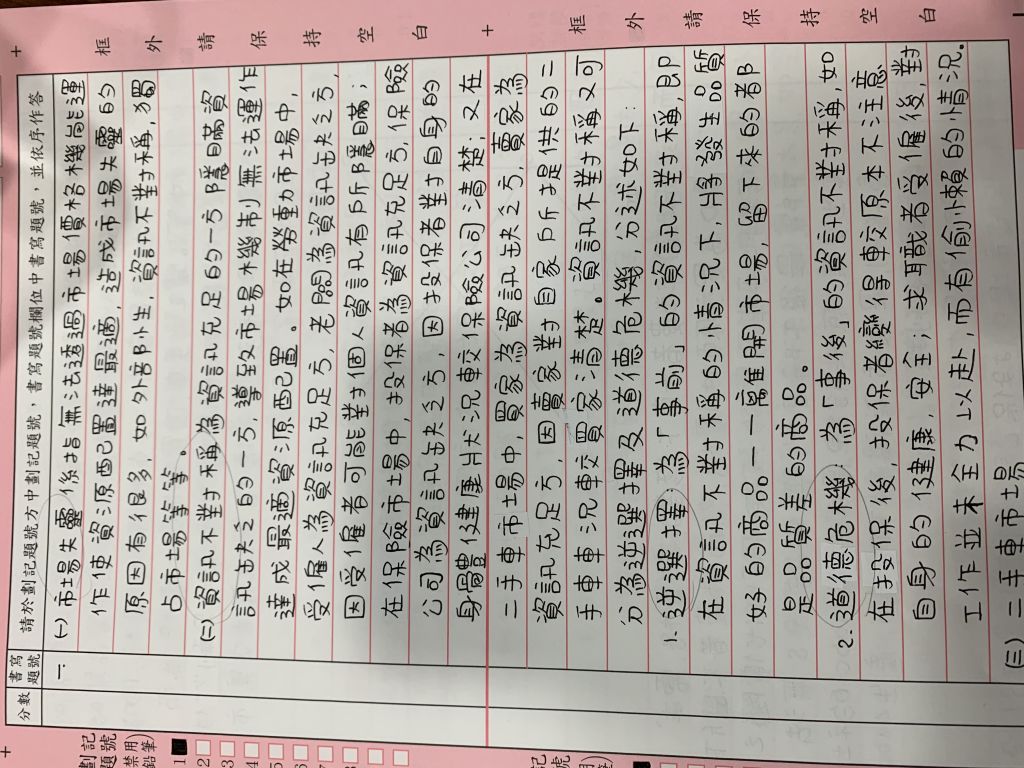 框 外 請 保 持 空 白
框 外 請 保 持 空 白
分數
書寫題號
請於劃記題號方中劃記題號，書寫題號欄位中書寫題號，並依序作答
一.
(一) 市場失靈係指無法透過市場價格機能運
作使資源配置達最適，造成市場失靈的
原因有很多，如外部外生，資訊不對稱，獨
占市場等等。
(二) 資訊不對稱為資訊充足的一方隱瞞資
訊缺乏的一方，導致市場機制無法運作
達成最適資源配置。如在勞動市場中，
受僱人為資訊充足方，老闆為資訊缺乏方，
因受僱者可能對個人資訊有所隱瞞；
在保險市場中，投保者為資訊充足方，保險
公司為資訊缺乏方，因投保者對自身的
身體健康狀況車較保險公司清楚；又在
二手車市場中，買家為資訊缺乏方，賣家為
資訊充足方，因賣家對自家所提供的二
手車車況較買家清楚。資訊不對稱又可
分為逆選擇及道德危機，分述如下：
1. 逆選擇：為「事前」的資訊不對稱，即
在資訊不對稱的情況下，將發生品質
好的商品一一離開市場，留下來的都
是品質差的商品。
2. 道德危機：為「事後」的資訊不對稱，如
在投保後，投保者變得車較原本不注意
自身的健康、安全；求職者受僱後，對
工作並未全力以赴，而有偷懶的情況。
(三) 二手車市場
劃記題號
禁用鉛筆
1
2
3
4
5
6
7
8